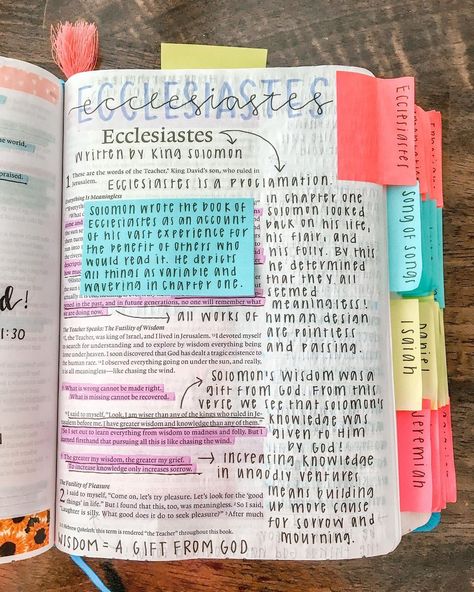 ECCLESIASTES
ecclesiastes
Ecclesiastes
Written by King Solomon
1 These are the words of the Teacher, King David's son, who ruled in
Jerusalem.
Ecclesiastes is a proclamation.
Everything Is Meaningless
Solomon wrote the book of
Ecclesiastes as an account
of his vast experience for
the benefit of others who
would read it. He depicts
all things as variable and
wavering in chapter one.
in the past, and in future generations, no one will remember what
we are doing now.
all works of human design
are pointless
and passing.
in chapter one
Solomon looked
back on his life,
his flair, and
his folly. By this
he determined
that they all
seemed
meaningless!
The Teacher Speaks: The Futility of Wisdom
I, the Teacher, was king of Israel, and I lived in Jerusalem. I devoted myself
to search for understanding and to explore by wisdom everything being
done under heaven. I soon discovered that God has dealt a tragic existence to
the human race. I observed everything going on under the sun, and really,
it is all meaningless—like chasing the wind.
What is wrong cannot be made right.
What is missing cannot be recovered.
I said to myself, "Look, I am wiser than any of the kings who ruled in Je-
rusalem before me. I have greater wisdom and knowledge than any of them."
So I set out to learn everything from wisdom to madness and folly. But I
learned firsthand that pursuing all this is like chasing the wind.
The greater my wisdom, the greater my grief.
To increase knowledge only increases sorrow.
Solomon's wisdom was a
gift from God. From this
verse we see that Solomon's
knowledge was
given to Him
by God!
increasing knowledge
in ungodly ventures
means building
up more cause
for sorrow and
mourning.
The Futility of Pleasure
2 I said to myself, "Come on, let's try pleasure. Let's look for the 'good
things' in life." But I found that this, too, was meaningless. So I said,
"Laughter is silly. What good does it do to seek pleasure?" After much
Hebrew Qoheleth; this term is rendered "the Teacher" throughout this book.
Wisdom = a gift from God
Ecclesiastes
Song of Songs
Isaiah
Daniel
Jeremiah
the world,
praised.
1:30